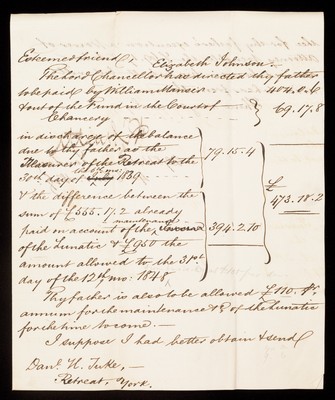 Esteemed friend,
Elizabeth Johnson.
The Lord Chancellor has directed thy father
to be paid by William Mansir 404.0.6
& out of the Fund in the Court of
Chancery 69.17.8
in discharge of the balance
due to thy father as the
Treasurer of the Retreat to the
30th day of 6 mo: 1839 79.15.4
& the difference between the
sum of £555.17.2 already
maintenance
paid in account of the
of the Lunatic & £950 the 394.2.10
amount allowed to the 31st
day of the 12th mo: 1848
£
473.18.2
Thy father is also to be allowed £110. pr.
annum for the maintenance &c of the Lunatic
for the time to come. —
I suppose I had better obtain & send
Danl. H. Tuke,
Retreat, York.